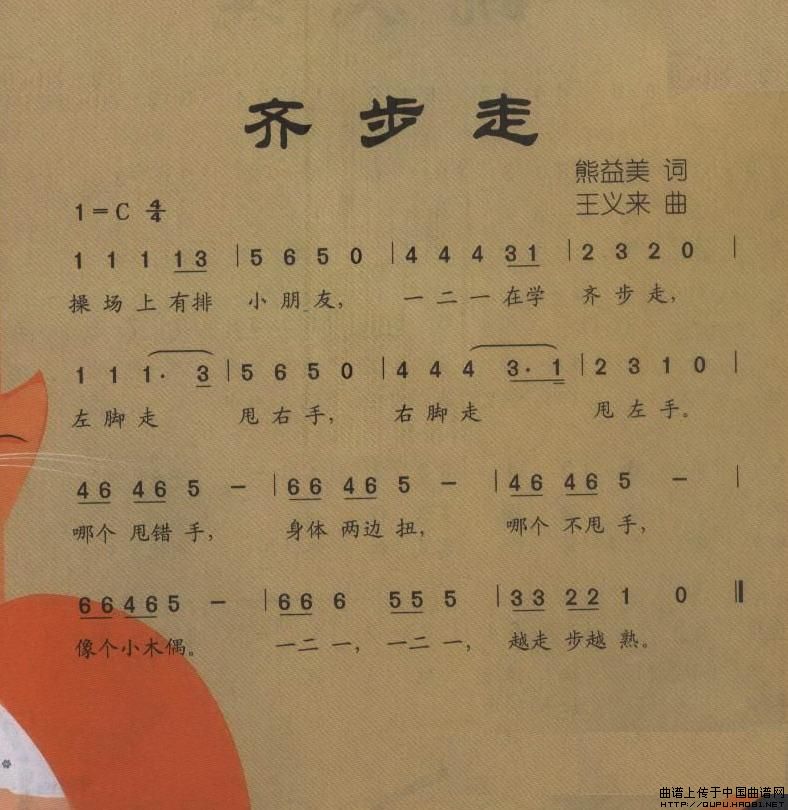 齐步走
熊益美 词
1=C 4/4 王义来 曲
1 1 1 1 3 | 5 6 5 0 | 4 4 4 3 1 | 2 3 2 0 |
操场上有排 小朋友， 一二一在学 齐步走，
1 1 1· 3 | 5 6 5 0 | 4 4 4 3· 1 | 2 3 1 0 |
左脚走 甩右手， 右脚走 甩左手。
4 6 4 6 5 － | 6 6 4 6 5 － | 4 6 4 6 5 － |
哪个甩错手， 身体两边扭， 哪个不甩手，
6 6 4 6 5 － | 6 6 6 5 5 5 | 3 3 2 2 1 0 ‖
像个小木偶。 一二一，一二一， 越走步越熟。
曲谱上传于中国曲谱网
HTTP://QUPU.HAO81.NET